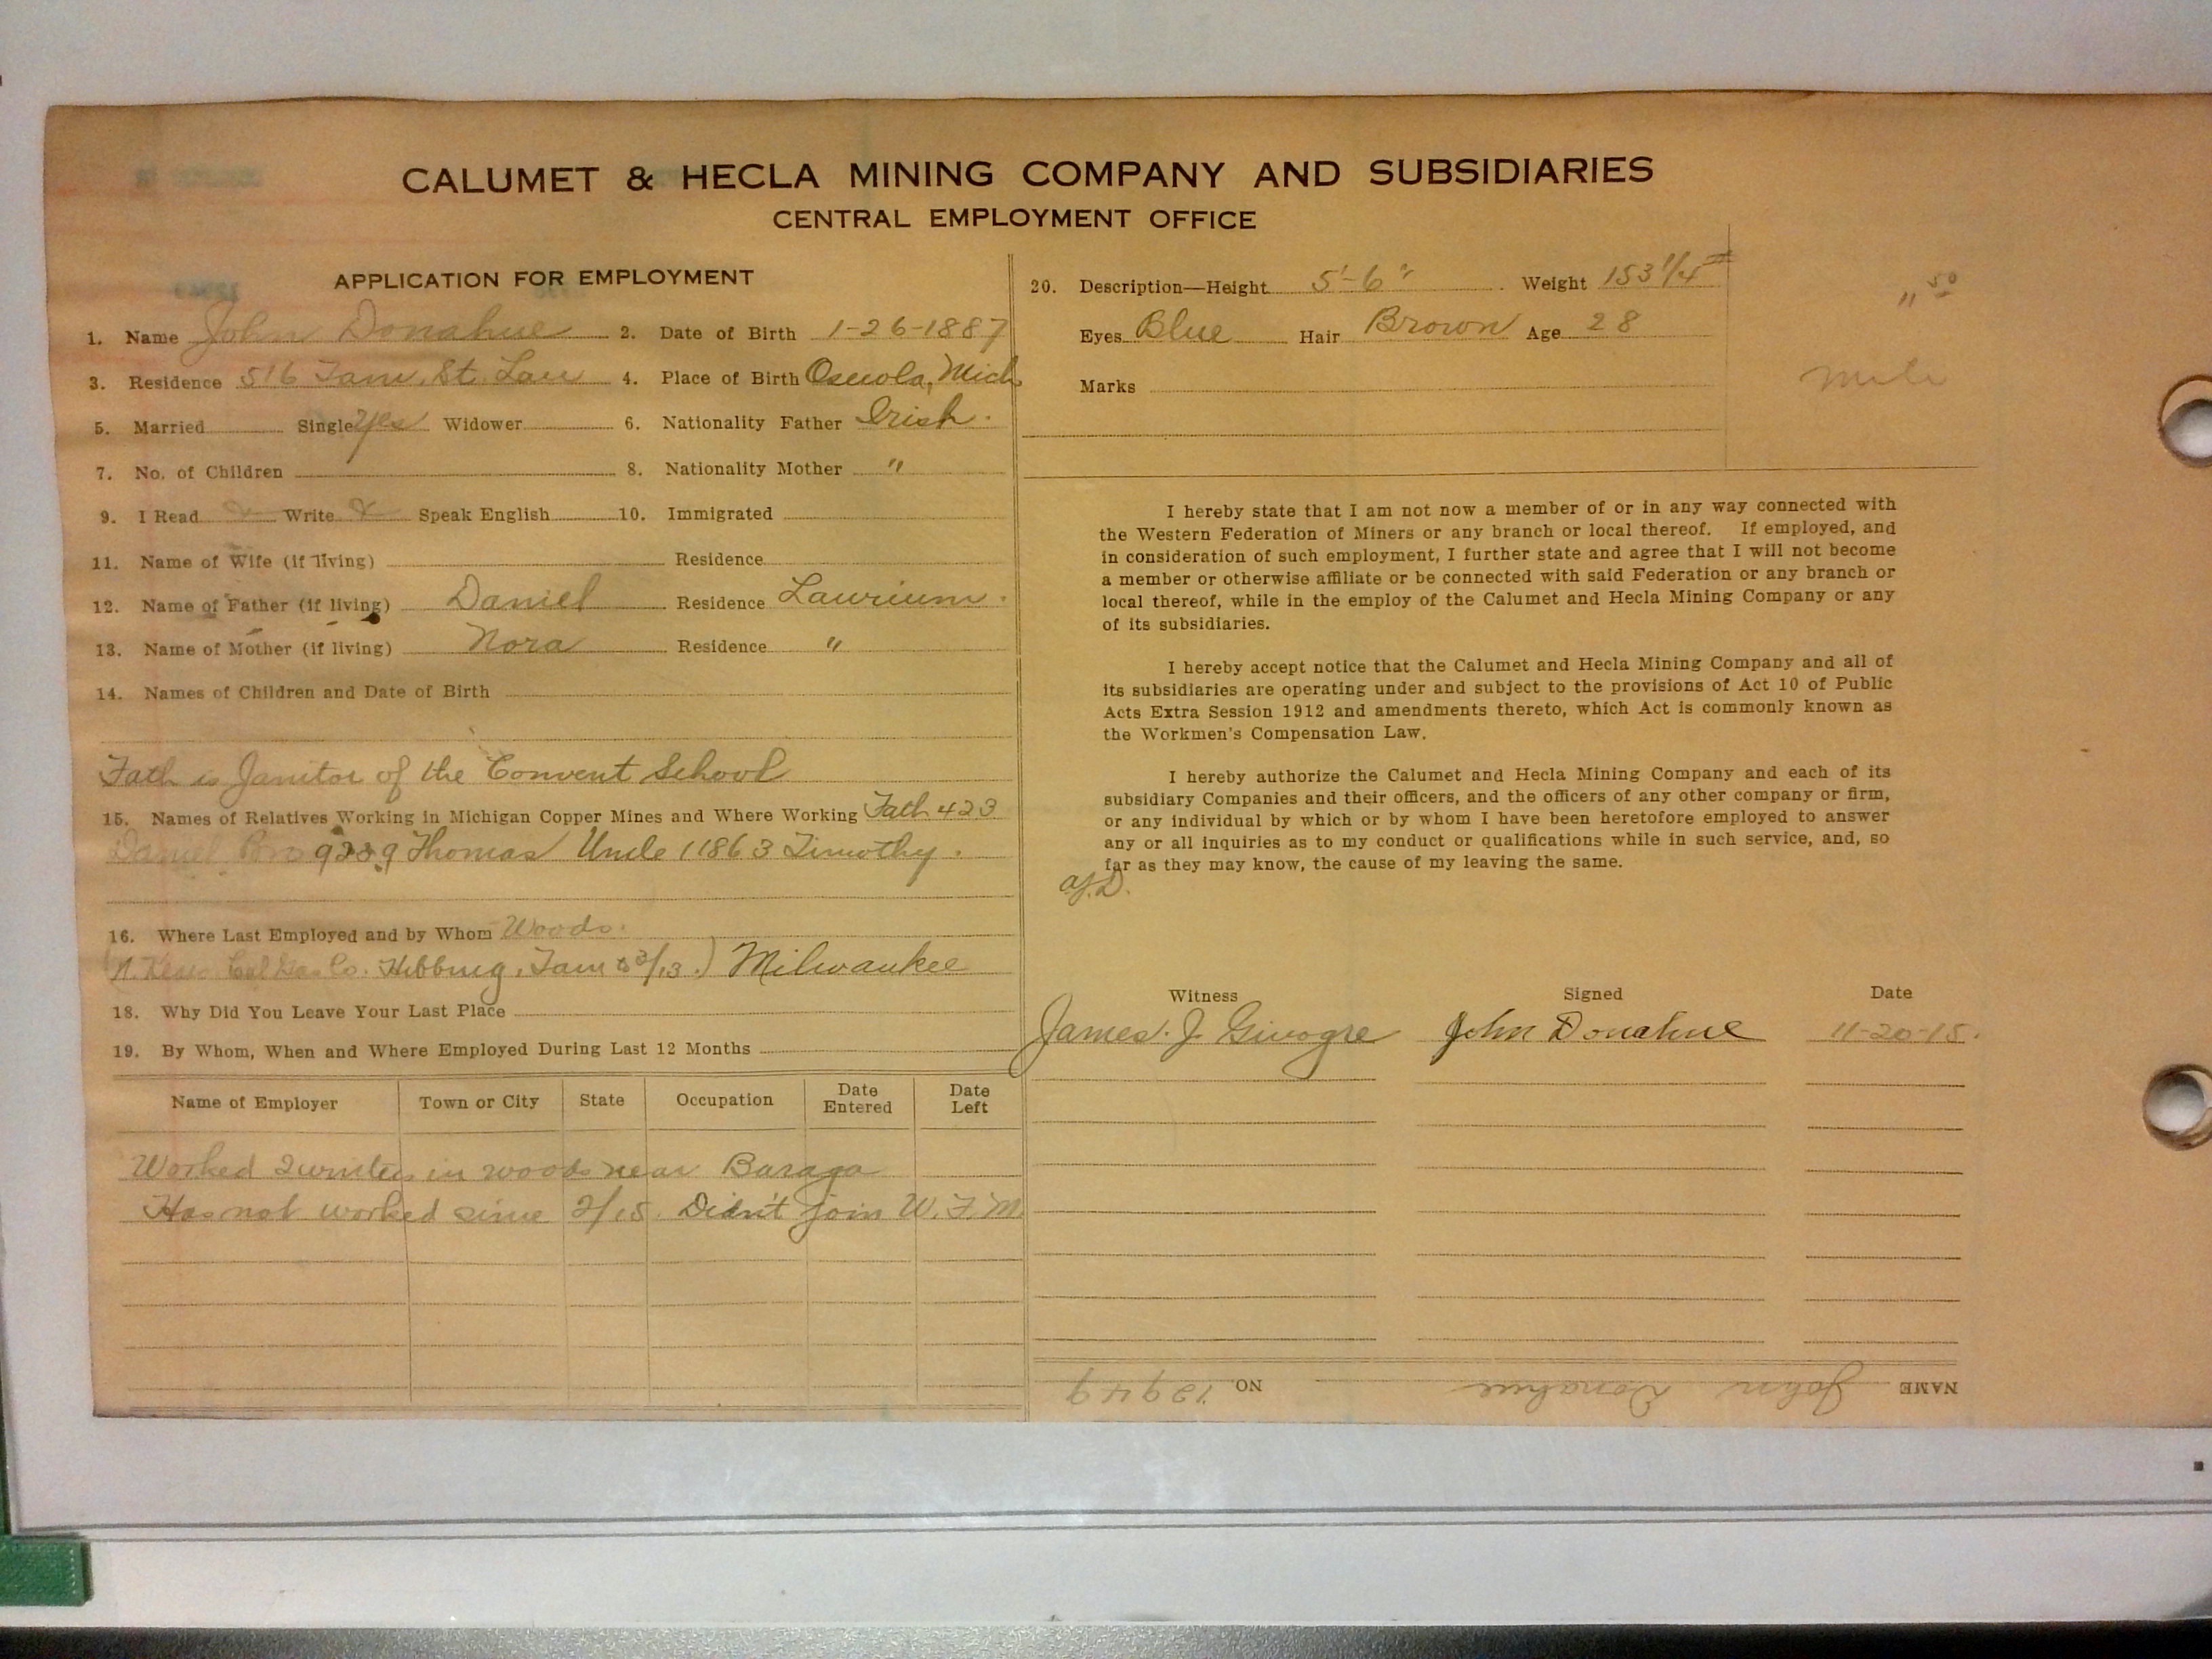 CALUMET & HECLA MINING COMPANY AND SUBSIDIARIES
CENTRAL EMPLOYMENT OFFICE
APPLICATION FOR EMPLOYMENT
1. Name John Donahue 2. Date of Birth 1-26-1887
3. Residence 516 Tam. St. Lau 4. Place of Birth Osceola, Mich
5. Married Single Yes Widower 6. Nationality Father Irish.
7. No. of Children 8. Nationality Mother "
9. I Read Write Speak English 10. Immigrated
11. Name of Wife (if living) Residence
12. Name of Father (if living) Daniel Residence Laurium.
13. Name of Mother (if living) Nora Residence "
14. Names of Children and Date of Birth
Fath is Janitor of the Convent School
15. Names of Relatives Working in Michigan Copper Mines and Where Working Fath 423
Daniel Bro Thomas Uncle 11863 Timothy.
16. Where Last Employed and by Whom Woods.
Hibbing, 3/13.) Milwaukee
18. Why Did You Leave Your Last Place
19. By Whom, When and Where Employed During Last 12 Months
Name of Employer Town or City State Occupation Date Entered Date Left
Worked 2 winters in woods near Baraga
Has not worked since 2/15. Didn't join W.F.M.
20. Description—Height 5'-6" Weight 153 1/4 #
Eyes Blue Hair Brown Age 28
Marks
" 50
I hereby state that I am not now a member of or in any way connected with
the Western Federation of Miners or any branch or local thereof. If employed, and
in consideration of such employment, I further state and agree that I will not become
a member or otherwise affiliate or be connected with said Federation or any branch or
local thereof, while in the employ of the Calumet and Hecla Mining Company or any
of its subsidiaries.
I hereby accept notice that the Calumet and Hecla Mining Company and all of
its subsidiaries are operating under and subject to the provisions of Act 10 of Public
Acts Extra Session 1912 and amendments thereto, which Act is commonly known as
the Workmen's Compensation Law.
I hereby authorize the Calumet and Hecla Mining Company and each of its
subsidiary Companies and their officers, and the officers of any other company or firm,
or any individual by which or by whom I have been heretofore employed to answer
any or all inquiries as to my conduct or qualifications while in such service, and, so
far as they may know, the cause of my leaving the same.
Witness Signed Date
James. J. John Donahue 11-20-15.
NAME John Donahue NO. 12949